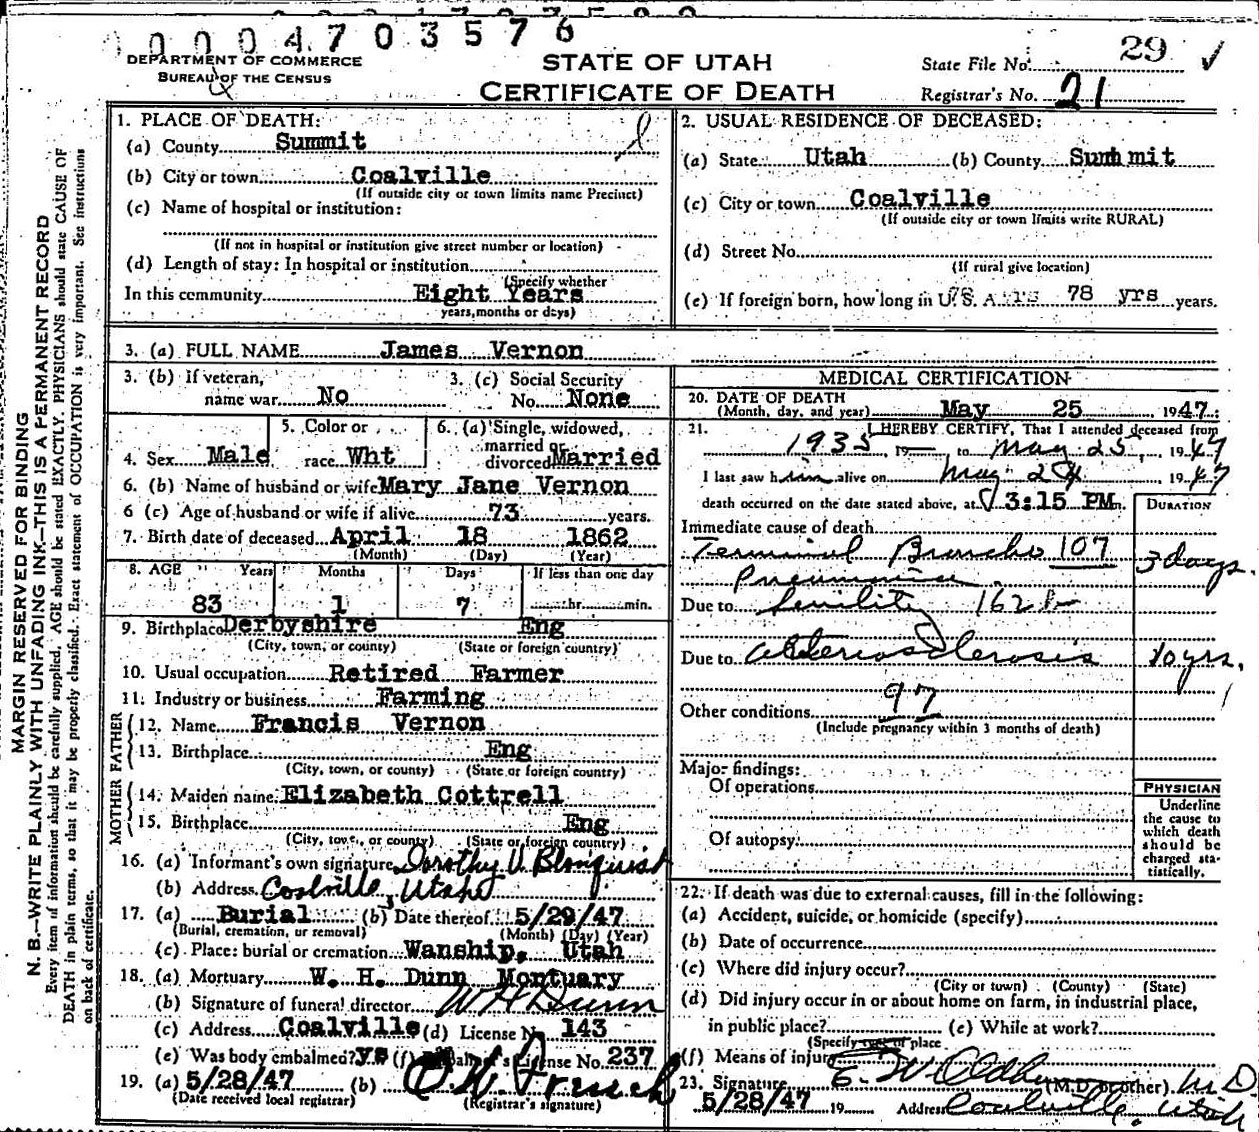 00004703576
DEPARTMENT OF COMMERCE
BUREAU OF THE CENSUS
STATE OF UTAH
CERTIFICATE OF DEATH
State File No. 29 ✓
Registrar's No. 21
MARGIN RESERVED FOR BINDING
N. B.—WRITE PLAINLY WITH UNFADING INK—THIS IS A PERMANENT RECORD
Every item of information should be carefully supplied. AGE should be stated EXACTLY. PHYSICIANS should state CAUSE OF
DEATH in plain terms, so that it may be properly classified. Exact statement of OCCUPATION is very important. See instructions
on back of certificate.
1. PLACE OF DEATH:
(a) County Summit
(b) City or town Coalville
(If outside city or town limits name Precinct)
(c) Name of hospital or institution:
(If not in hospital or institution give street number or location)
(d) Length of stay: In hospital or institution
(Specify whether
In this community Eight Years
years, months or days)
2. USUAL RESIDENCE OF DECEASED:
(a) State Utah (b) County Summit
(c) City or town Coalville
(If outside city or town limits write RURAL)
(d) Street No.
(If rural give location)
(e) If foreign born, how long in U. S. A. 78 yrs years.
3. (a) FULL NAME James Vernon
3. (b) If veteran, name war No
3. (c) Social Security No. None
4. Sex Male
5. Color or race Wht
6. (a) Single, widowed, married or divorced Married
6. (b) Name of husband or wife Mary Jane Vernon
6 (c) Age of husband or wife if alive 73 years.
7. Birth date of deceased April 18 1862
(Month) (Day) (Year)
8. AGE Years Months Days If less than one day
83 1 7 hr. min.
9. Birthplace Derbyshire Eng
(City, town, or county) (State or foreign country)
10. Usual occupation Retired Farmer
11. Industry or business Farming
FATHER
12. Name Francis Vernon
13. Birthplace Eng
(City, town, or county) (State or foreign country)
MOTHER
14. Maiden name Elizabeth Cottrell
15. Birthplace Eng
(City, town, or county) (State or foreign country)
16. (a) Informant's own signature Dorothy V. Blonquist
(b) Address Coalville, Utah
17. (a) Burial (b) Date thereof 5/29/47
(Burial, cremation, or removal) (Month) (Day) (Year)
(c) Place: burial or cremation Wanship, Utah
18. (a) Mortuary W. H. Dunn Montuary
(b) Signature of funeral director W H Dunn
(c) Address Coalville (d) License No. 143
(e) Was body embalmed? ys (f) Embalmer's License No. 237
19. (a) 5/28/47 (b)
(Date received local registrar) (Registrar's signature)
MEDICAL CERTIFICATION
20. DATE OF DEATH
(Month, day, and year) May 25 1947
21. I HEREBY CERTIFY, That I attended deceased from
1935 19— to May 25, 1947
I last saw him alive on May 24 1947
death occurred on the date stated above, at 3:15 PM m.
DURATION
Immediate cause of death
Terminal Broncho 107
Pneumonia. 3 days.
Due to Senility 162b
Due to Arteriosclerosis 10 yrs.
97
Other conditions
(Include pregnancy within 3 months of death)
Major findings:
Of operations
Of autopsy
PHYSICIAN
Underline
the cause to
which death
should be
charged sta-
tistically.
22. If death was due to external causes, fill in the following:
(a) Accident, suicide, or homicide (specify)
(b) Date of occurrence
(c) Where did injury occur?
(City or town) (County) (State)
(d) Did injury occur in or about home on farm, in industrial place,
in public place? (e) While at work?
(Specify type of place
(f) Means of injury
23. Signature (M.D. or other) M D
5/28/47 19 Address Coalville, Utah